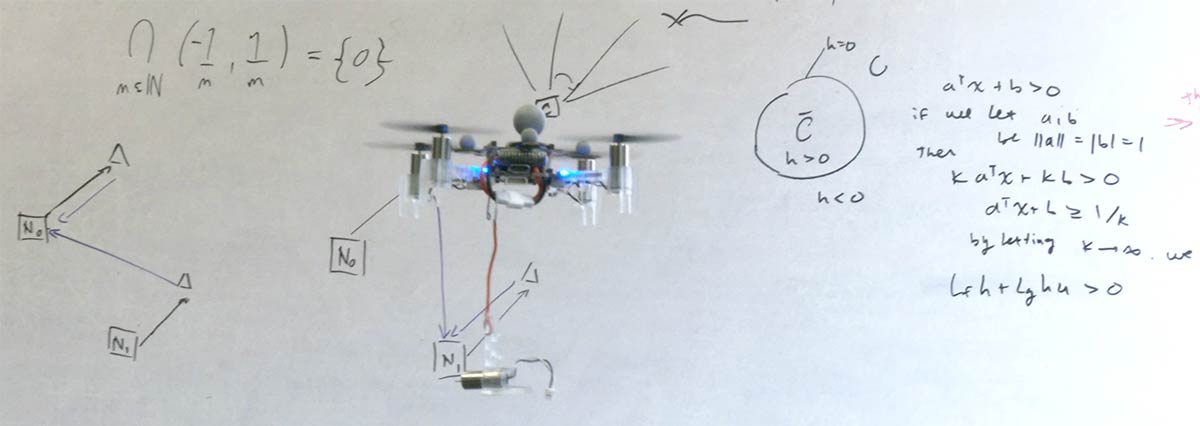 ⋂ (-1/m, 1/m) = {0}
m∈ℕ
N₀
N₁
N₀
N₁
h=0
C
C̄
h>0
h<0
aᵀx+b>0
if we let a,b
be ||a||=|b|=1
Then
k aᵀx + k b > 0
aᵀx+b ≥ 1/k
by letting k→∞. we
L_f h + L_g h u > 0